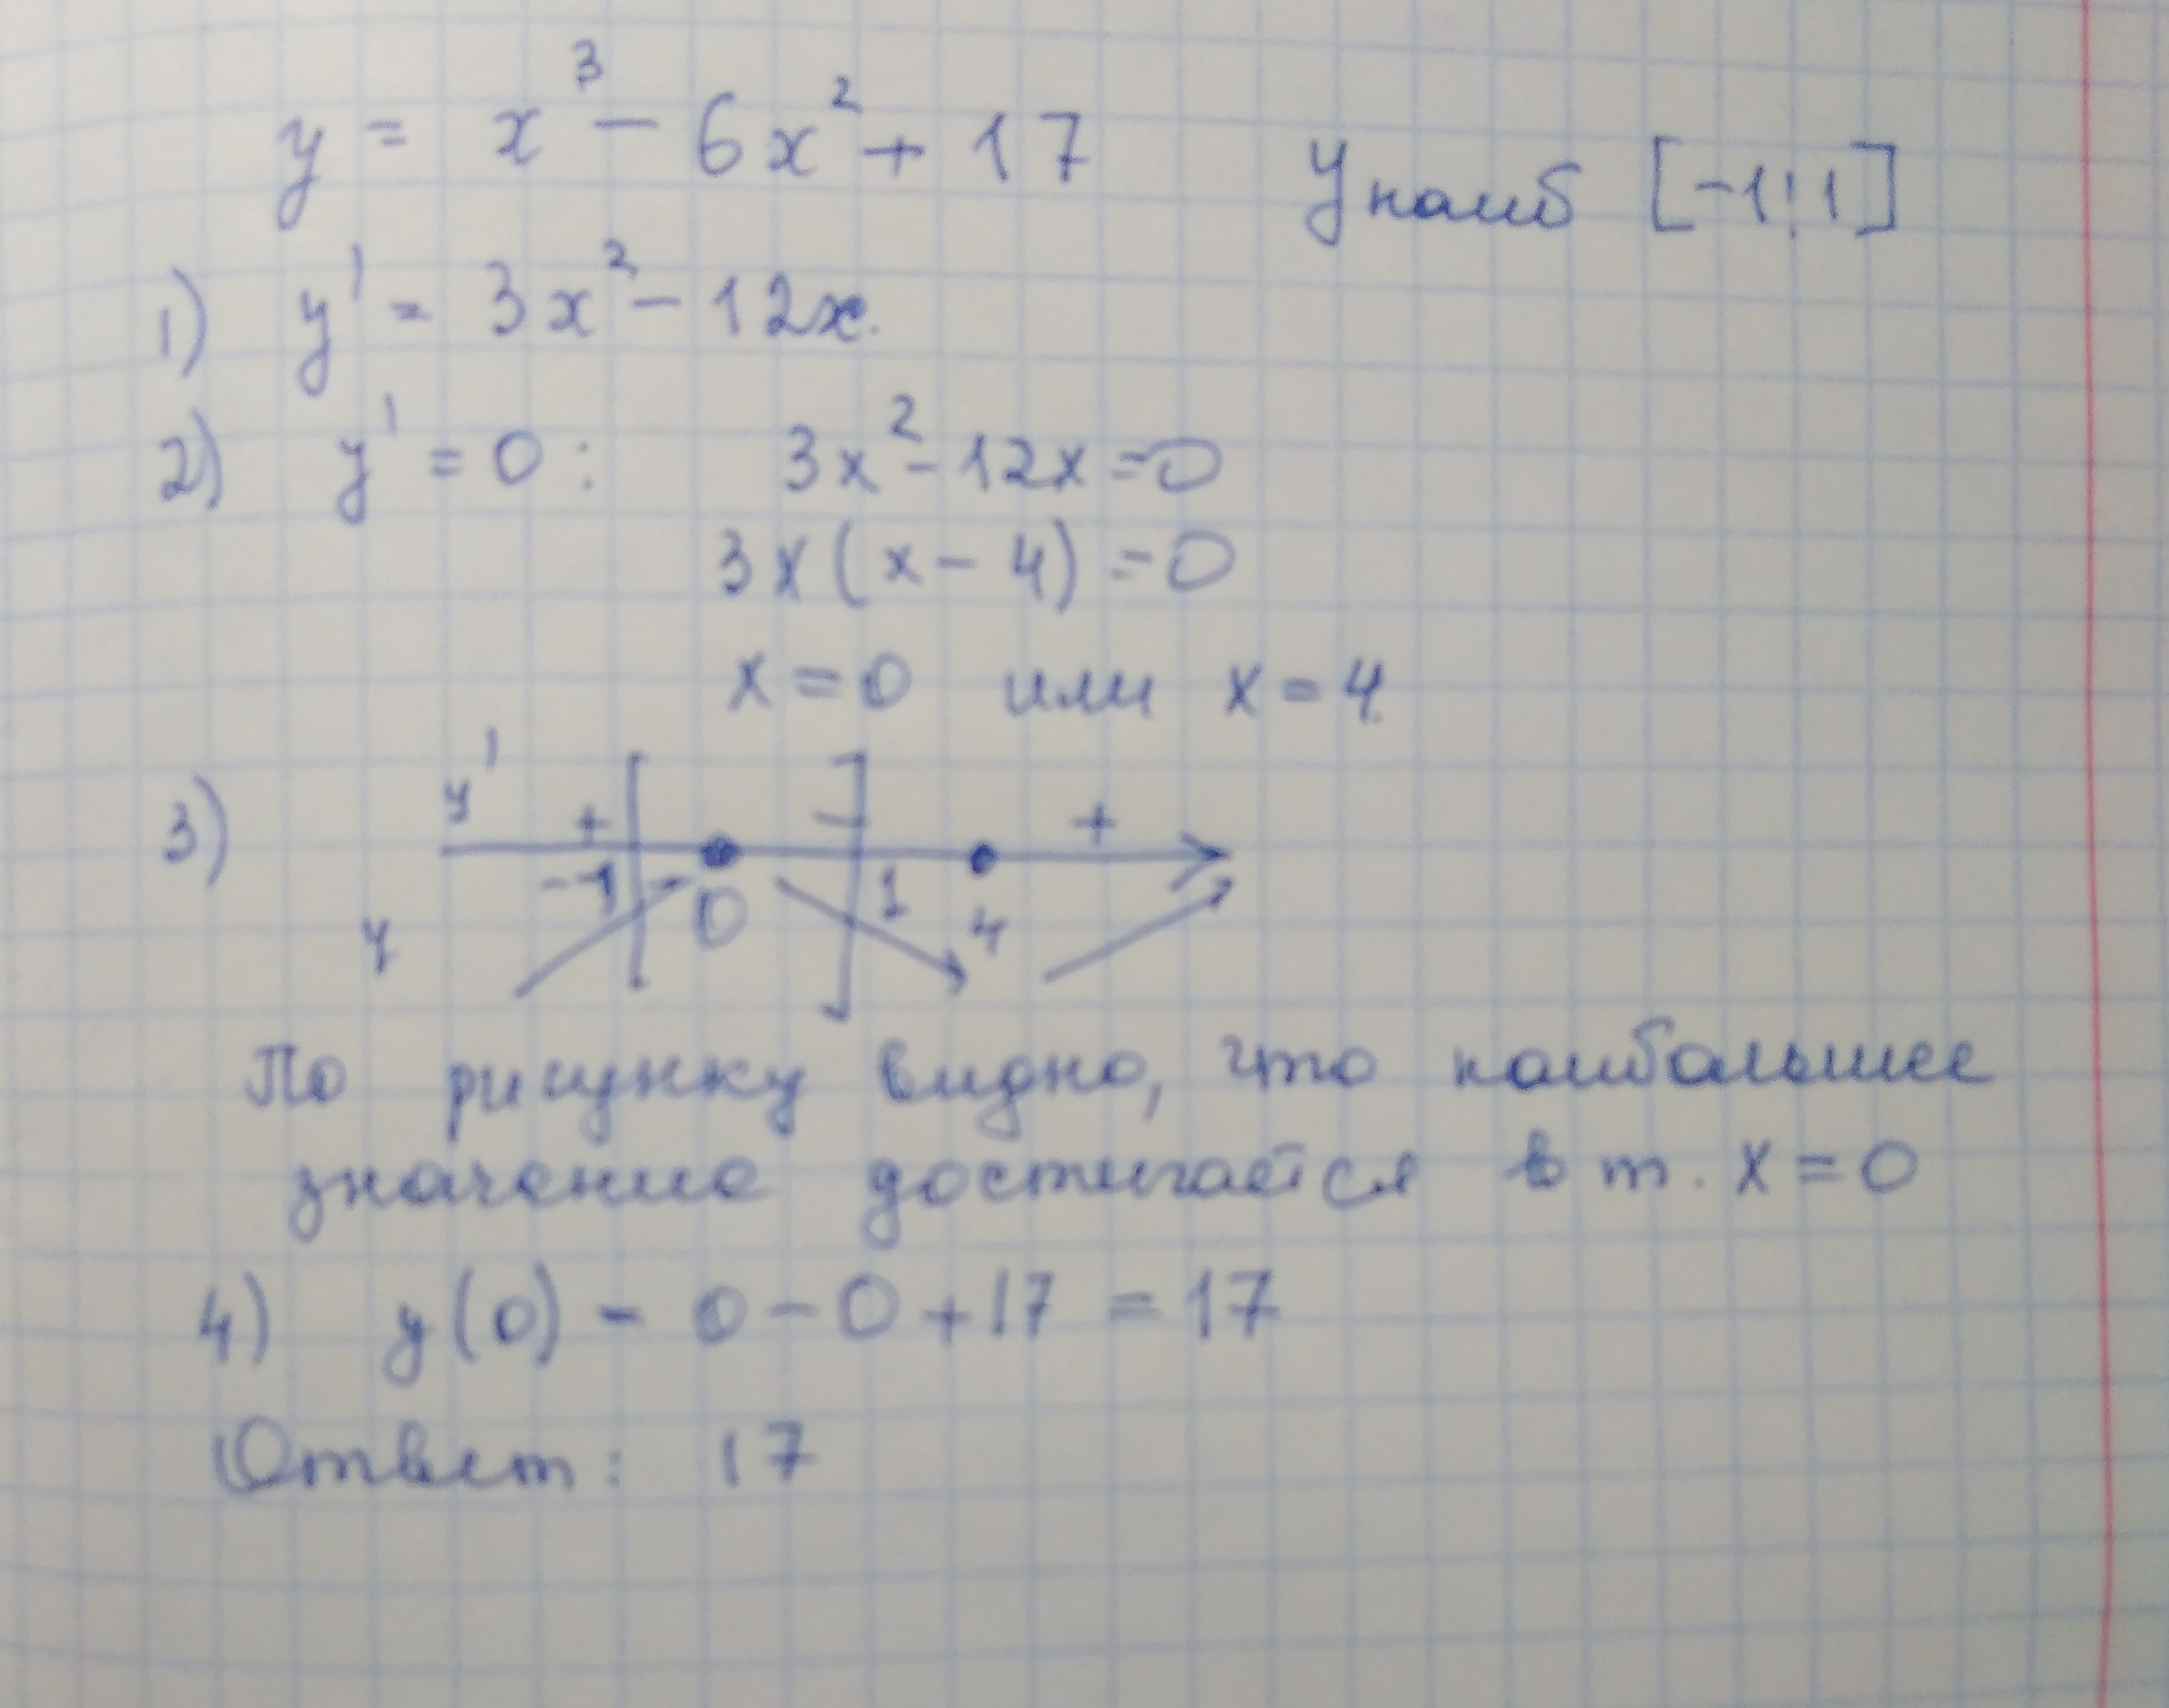 y = x³ - 6x² + 17 Yнаиб [-1;1]
1) y' = 3x² - 12x.
2) y' = 0 : 3x² - 12x = 0
3x(x - 4) = 0
x = 0 или x = 4
3) y' + - +
-1 0 1 4
y
По рисунку видно, что наибольшее
значение достигается в т. x = 0
4) y(0) = 0 - 0 + 17 = 17
Ответ: 17